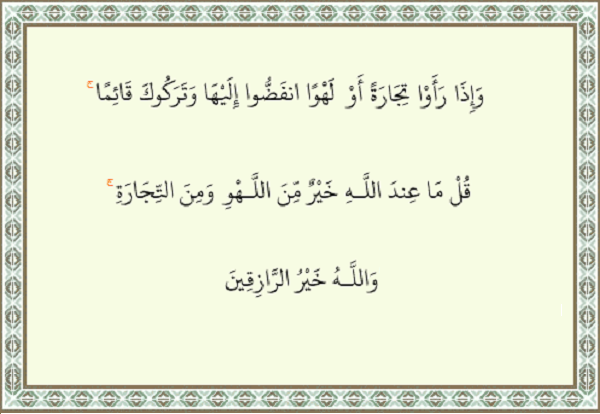 وَإِذَا رَأَوْا تِجَارَةً أَوْ لَهْوًا انفَضُّوا إِلَيْهَا وَتَرَكُوكَ قَائِمًا ۚ
قُلْ مَا عِندَ اللَّـهِ خَيْرٌ مِّنَ اللَّـهْوِ وَمِنَ التِّجَارَةِ ۚ
وَاللَّـهُ خَيْرُ الرَّازِقِينَ